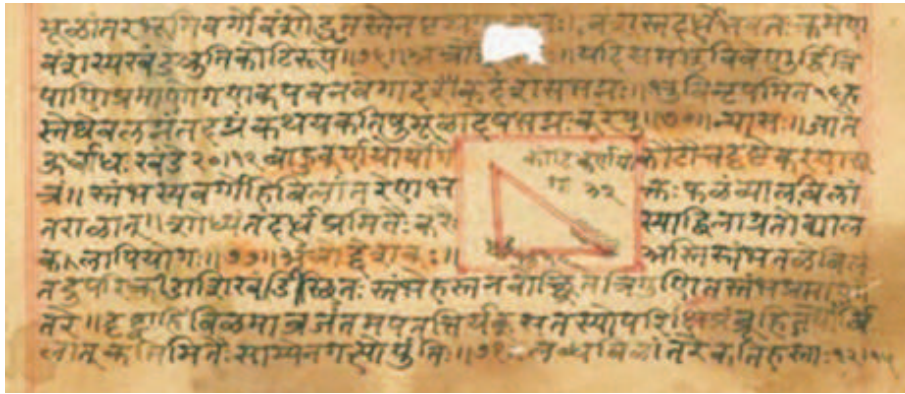 मूळांतरभूमिवर्गो वंशोद्धृतस्तेन ॥ वंशस्तदर्धे भवतः क्रमेण
वंशस्य खंडे श्रुतिकोटिरूपे॥ ॥यदि समभुवि वेणुर्द्वित्रि
पाणिप्रमाणो गणक पवनवेगादेकदेशे स भग्नः॥भुवि नृपमित१६ह
तदग्रं कथय कतिषु मूळादेष भग्नः करेषु॥७०॥न्यासः॥जाते
ऊर्ध्वाधः खंडे २०।१२ कोटौ च दृष्टे करणसू
त्रं॥स्तंभस्य वर्गोहिबिलांतरेण भ ३२ क्तः फळं व्यालबिलां
तराळात्॥शोध्यं तदर्धप्रमितैः करैः स्याद्बिलाग्रतो व्याल
कलापियोगः॥७७॥ अस्ति स्तंभतळे बिलं
तदुपरि क्रीडाशिखंडी स्थितः स्तंभे हस्तनवोच्छ्रिते त्रिगुणितस्तंभप्रमाणां
तरे॥दृष्ट्वाहिं बिळमाव्रजंतमपतत्तिर्यक् स तस्योपरि क्षिप्रं ब्रूहि तयोर्बि
लात्कतिमितैः साम्येन गत्योर्युतिः॥ लब्धबिलांतरे कतिहस्ताः १२।१५